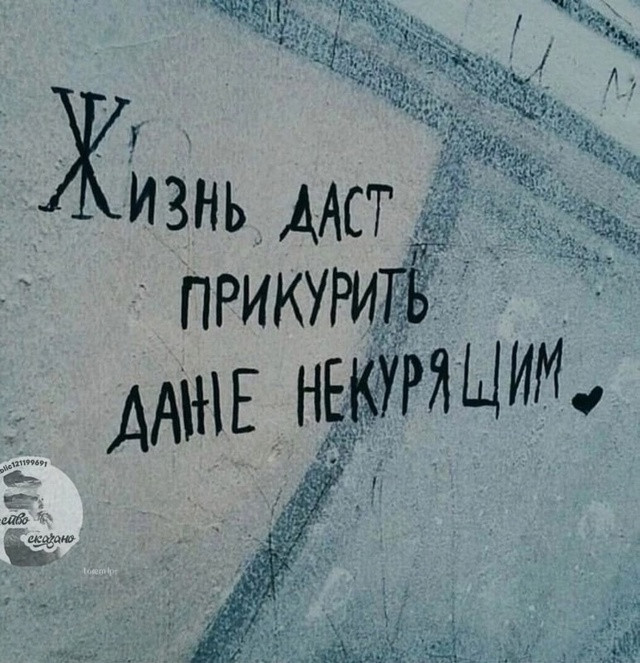 И м
Жизнь даст
прикурить
даже некурящим
public121199691
сказано